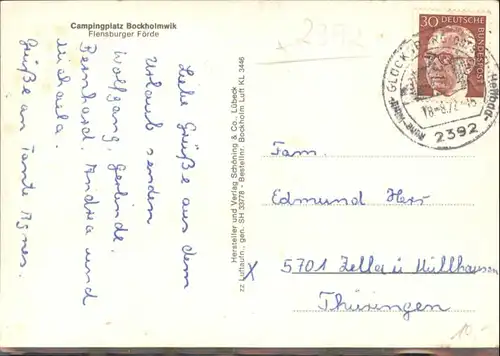 Campingplatz Bockholmwik
Flensburger Förde
Liebe Grüße aus dem
Urlaub senden
Wolfgang, Gerlinde,
Bernhard, Andrea und
Michaela.
Grüße an Tante Agnes.
Hersteller und Verlag Schöning & Co., Lübeck
zz Luftaufn. gen. SH 33778 - Bestellnr. Bockholm Luft KL 3446
2392
30 DEUTSCHE
BUNDESPOST
GLÜCKSBURG
2392
Fam.
Edmund Hers
5701 Zella ü Mülhausen
Thüringen
10.-